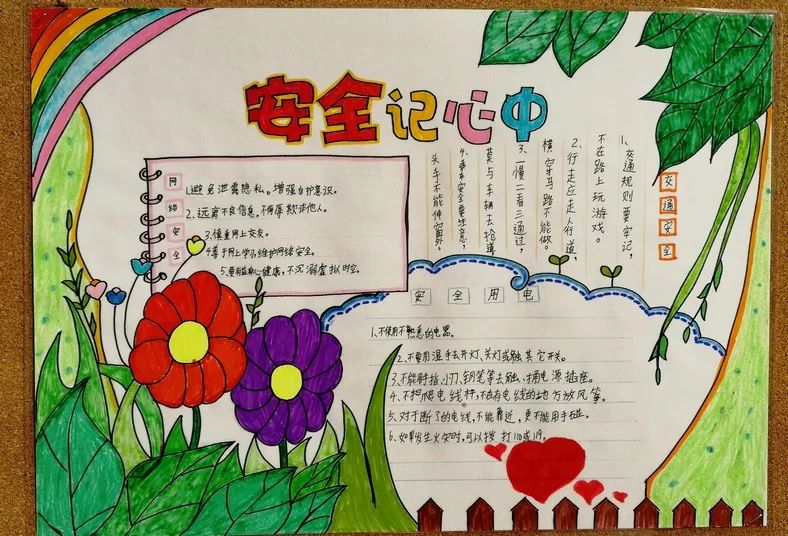 安全记心中
网络安全
1.避免泄露隐私。增强自护意识。
2.远离不良信息,不侮辱欺诈他人。
3.慎重网上交友。
4.善于网上学习维护网络安全。
5.要有益身心健康,不沉溺虚拟时空。
交通安全
1、交通规则要牢记,
不在路上玩游戏。
2、行走应走人行道,
横穿马路不能做。
3、一慢二看三通过,
莫与车辆去抢道
4、乘车安全要注意,
头手不能伸窗外。
安全用电
1.不使用不熟悉的电器。
2.不要用湿手去开灯、关灯或触其它开关。
3.不能用手指、小刀、钢笔等去触、捅电源插座。
4.不攀爬电线杆,不在有电线的地方放风筝。
5.对于断了的电线,不能靠近,更不能用手碰。
6.如果发生火灾时,可以拨打110或119。